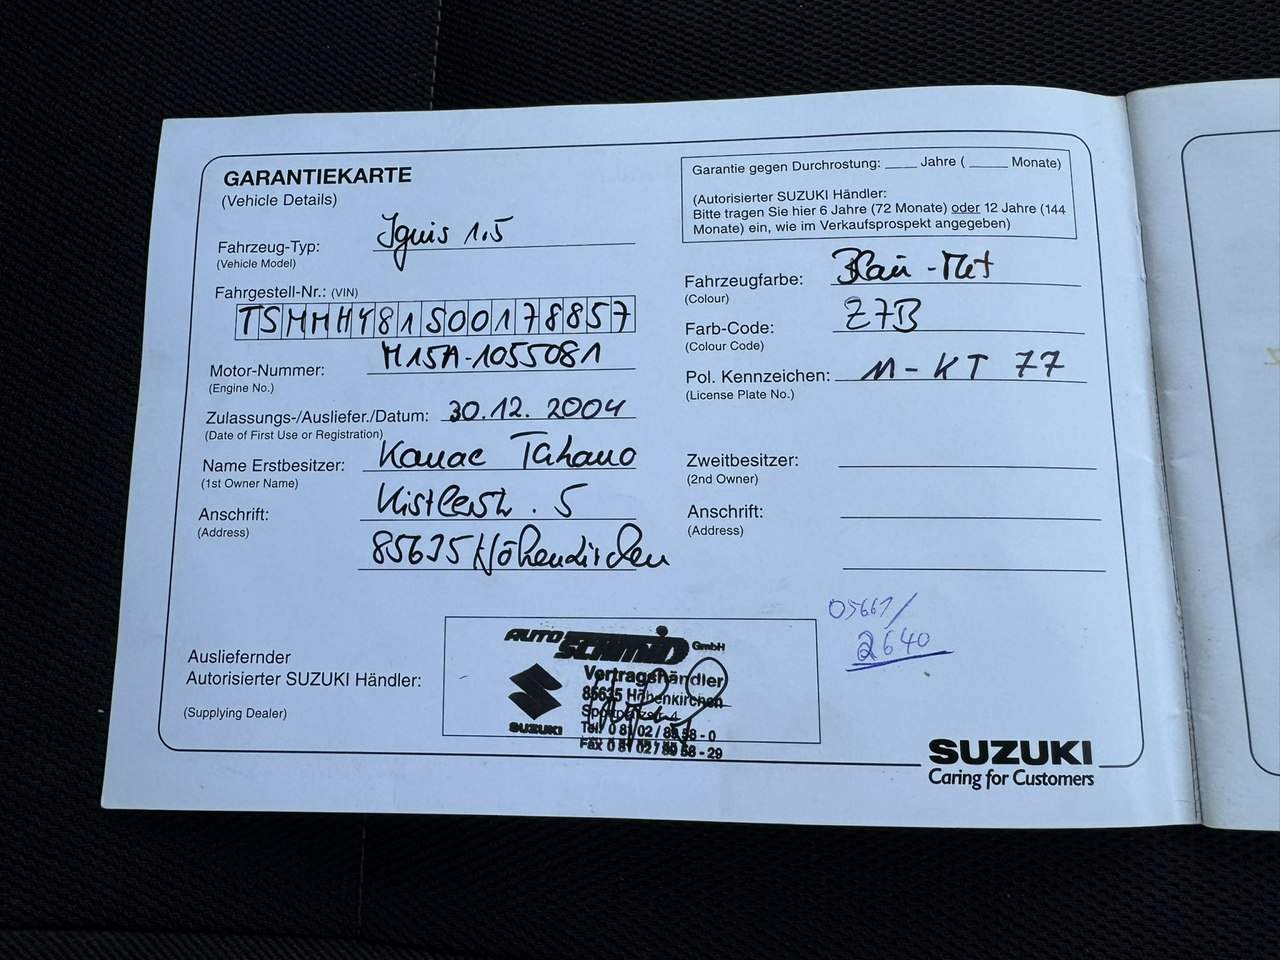 GARANTIEKARTE
(Vehicle Details)
Fahrzeug-Typ: Ignis 1.5
(Vehicle Model)
Fahrgestell-Nr.: (VIN)
TSMMHY81S00178857
Motor-Nummer: M15A-1055081
(Engine No.)
Zulassungs-/Ausliefer./Datum: 30.12.2004
(Date of First Use or Registration)
Name Erstbesitzer: Kanae Takano
(1st Owner Name)
Anschrift: Kistlerstr. 5
(Address)
85635 Höhenkirchen
Ausliefernder
Autorisierter SUZUKI Händler:
(Supplying Dealer)
AUTO SCHMID GmbH
Vertragshändler
85635 Höhenkirchen
Tel. 0 81 02 / 89 58 - 0
Fax 0 81 02 / 89 58 - 29
SUZUKI
Garantie gegen Durchrostung: ____ Jahre ( _____ Monate)
(Autorisierter SUZUKI Händler:
Bitte tragen Sie hier 6 Jahre (72 Monate) oder 12 Jahre (144
Monate) ein, wie im Verkaufsprospekt angegeben)
Fahrzeugfarbe: Blau-Met
(Colour)
Farb-Code: Z7B
(Colour Code)
Pol. Kennzeichen: M-KT 77
(License Plate No.)
Zweitbesitzer:
(2nd Owner)
Anschrift:
(Address)
05661/
2640
SUZUKI
Caring for Customers